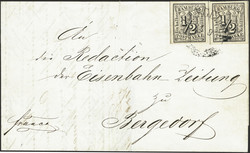 HAMBURG HAMBURG
1/2 1/2
An
die Redaction
der Eisenbahn Zeitung
zu
franco
Bergedorf